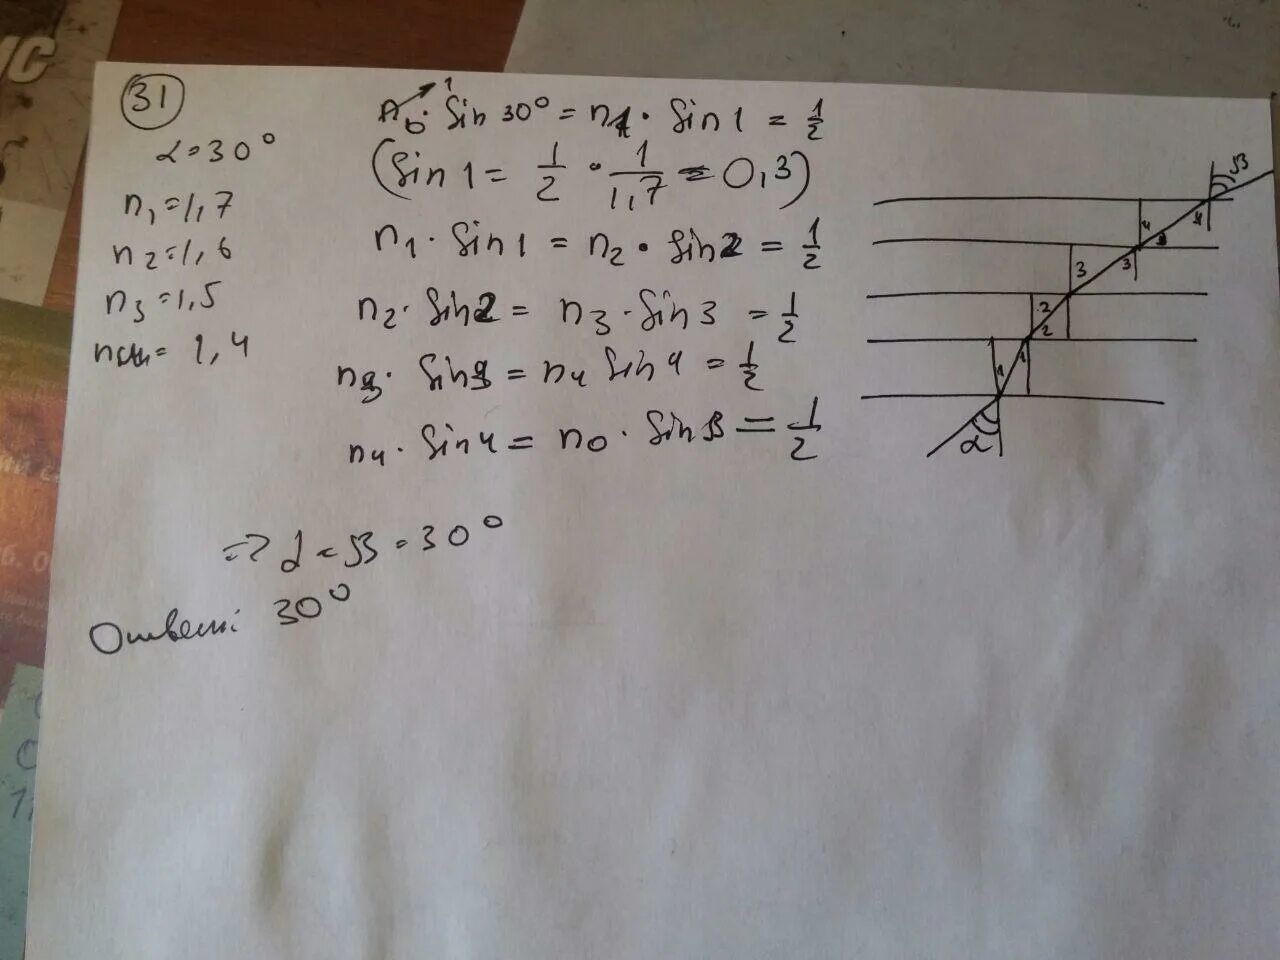 31
α = 30°
n₁ = 1,7
n₂ = 1,6
n₃ = 1,5
1,4
n₀ · sin 30° = n₁ · sin 1 = 1/2
(sin 1 = 1/2 · 1/1,7 = 0,3)
n₁ · sin 1 = n₂ · sin 2 = 1/2
n₂ · sin 2 = n₃ · sin 3 = 1/2
n₃ · sin 3 = n₄ sin 4 = 1/2
n₄ · sin 4 = n₀ · sin β = 1/2
=> α = β = 30°
Ответ: 30°
β
4 4
3 3
2 2
1 1
α